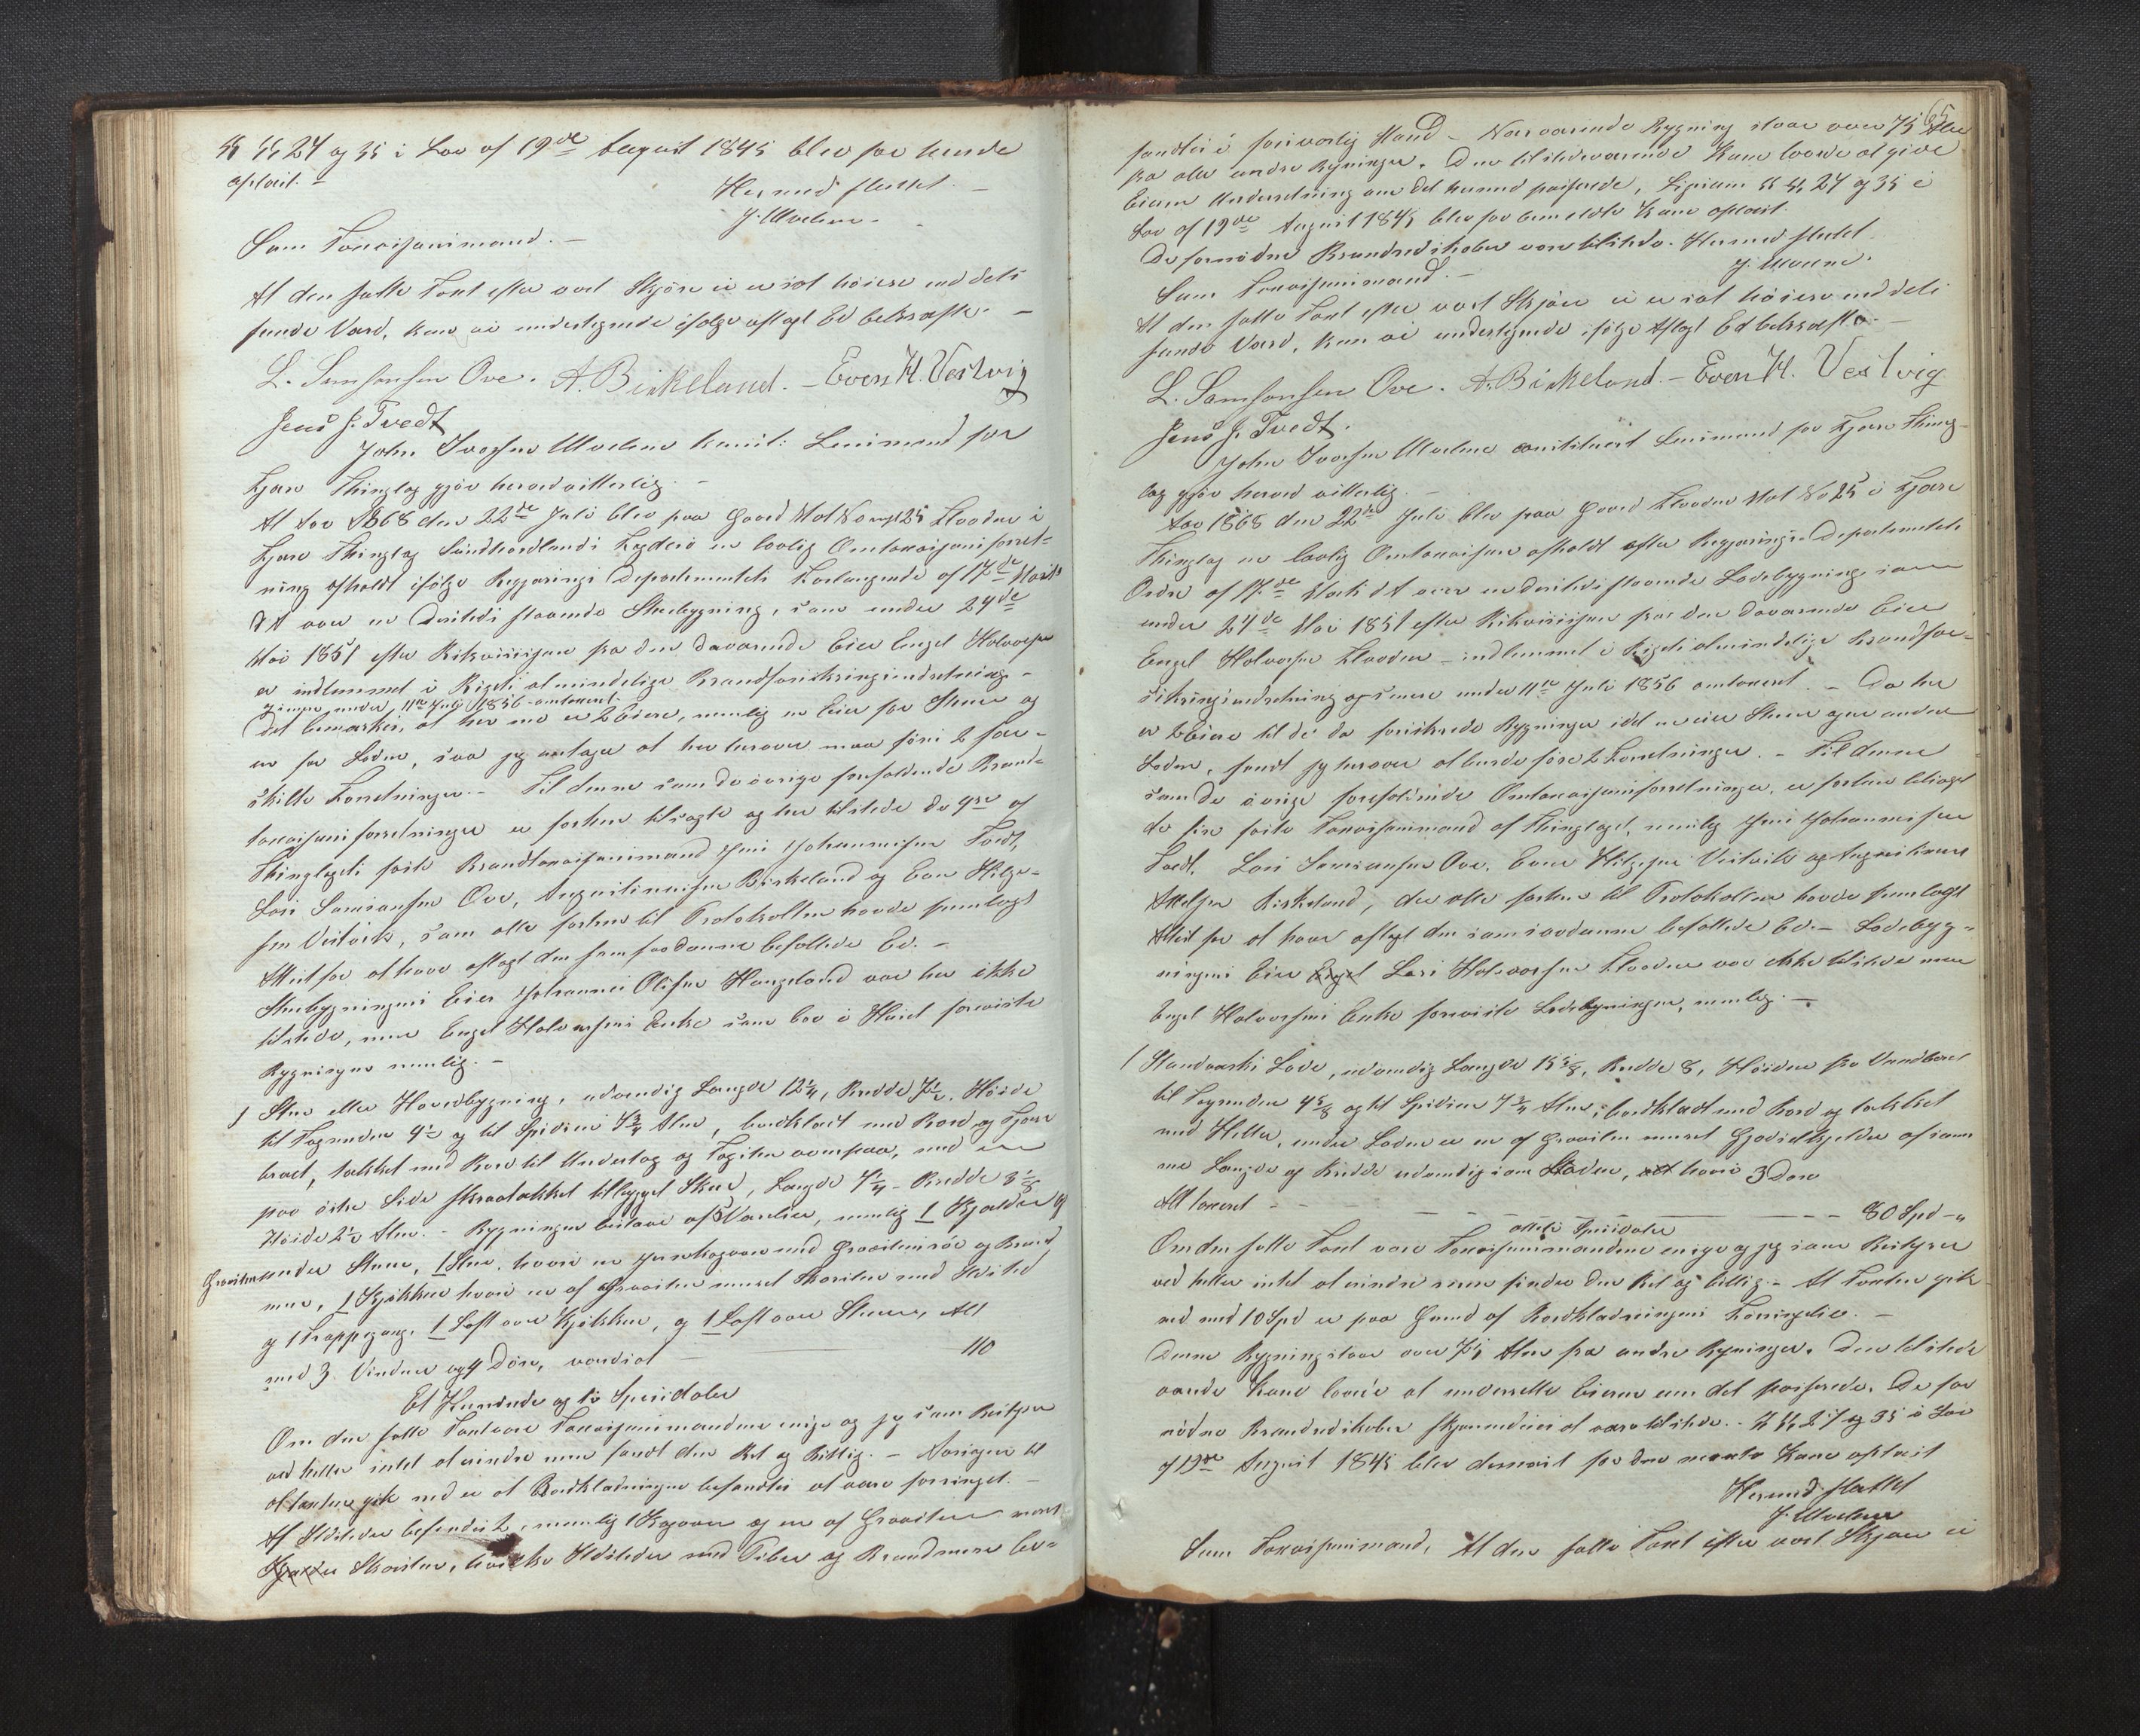 §§ 24 og 35 i Lov af 19de August 1845 blev for hende
oplæst.
Hermed sluttet. –
J. Mælen.
Som Taxasjonsmænd. –
At den satte Taxt efter vort Skjøn ei er sat høiere end dets
sande Værd, kan vi undertegnede ifølge aflagt Ed bekræfte. –
L. Samsonsen Ove. A. Birkeland. – Even H. Vestvig
Jens J. Tvedt
John Ivarsen Mælen konst: Lensmand for
Thinglag gjør herved vitterlig. –
At Aar 1868 den 22de Juli blev paa Gaard Mat No 25 i
Thinglag Søndhordlands Fogderi en lovlig Omtaxasjonsforret-
ning afholdt ifølge Regjerings Departementets Forlangende af 17de Marts
d A over en dersteds staaende Stuebygning, som under 24de
Mai 1851 efter Rekvisisjon fra den daværende Eier Engel Halvorsen
er indlemmet i Rigets almindelige Brandforsikringsindretning –
og senere under 11te Juli 1856 omtaxeret.
Det bemærkes, at her nu er 2 Eiere, nemlig en Eier for Stuen og
en for Loden, saa jeg antager at her herover maa føres 2 for-
skilte Forretninger. – Til denne som de øvrige forefaldende Brand-
taxasjons forretninger er forhen tilsagte og her tilstede de 4re af
Thinglagets faste Brandtaxasjonsmænd Jens Johannessen Tvedt,
Lars Samsonsen Ove, Birkeland og Even Helge-
sen Vestvik, som alle forhen til Protokollen havde fremlagt
Attest for at have aflagt den som saadanne befallede Ed. –
Stuebygningens Eier Johannes Olsen Haugeland var her ikke
tilstede, men Engel Halvorsens Enke som bor i Huset foreviste
Bygningen nemlig. –
1 Stue eller Hovedbygning, udvendig Længde 12 1/4, Bredde 7 1/2, Høide
til Tagrenden 4 1/2 og til Spidsen 7 3/4 Alen, bordklædt med Bord og
, tækket med Bord til Undertag og Tagsten ovenpaa, med en
paa østre Side skraatækket tilbygget Skur, Længde 7 1/4 – Bredde 3 1/8
Høide 2 1/2 Alen. – Bygningen bestaar af 5 Værelser, nemlig 1 Kjælder af
Graasten under Stuen, 1 Stue, hvori en Jernkakovn med Graastensrør og Brand
mur, 1 Kjøkken hvori en af Graasten muret Skorsten med
og 1 Trappegang, 1 Loft over Kjøkken, og 1 Loft over Stuen, Alt
med 3 Vinduer og 4 Døre, værdsat – 110
Et Hundrede og ti Speciedaler
Om den satte Taxt vare Taxasjonsmændene enige og jeg som Bestyrer
ved heller intet at erindre men fandt den Ret og Billig. – Aarsagen til
at Taxten gik ned er at Bordklædningen befandtes at være forringet. –
Af Ildsteder befindes 2, nemlig 1 Kakovn og en af Graasten muret
Skorsten, hvilke Ildsteder med Piber og Brandmure be-
65
fandtes i forsvarlig Stand – Nærværende Bygning staar over 75 Alen
fra alle andre Bygninger. Den tilstedeværende Kone lovede at give
Eieren Underretning om det hermed passerede, ligesom §§ 24 og 35 i
Lov af 19de August 1845 blev for bemeldte Kone oplæst.
De fornødne Brandredskaber vare tilstede. Hermed sluttet.
J. Mælen.
Som Taxasjonsmænd. –
At den satte Taxt efter vort Skjøn ei er sat høiere end dets
sande Værd, kan vi undertegnede ifølge Aflagt Ed bekræfte. –
L. Samsonsen Ove. A. Birkeland. – Even H. Vestvig
Jens J. Tvedt.
John Ivarsen Mælen constitueret Lensmand for Thing-
lag gjør herved vitterlig. –
Aar 1868 den 22de Juli blev paa Gaard Mat No 25 i
Thinglag en lovlig Omtaxasjon afholdt efter Regjerings Departementets
Ordre af 17de Marts d A over en dersteds staaende Lodebygning, som
under 24de Mai 1851 efter Rekvisisjon fra den daværende Eier
Engel Halvorsen – indlemmet i Rigets almindelige Brandfor-
sikringsindretning og senere under 11te Juli 1856 omtaxeret. – Da her
er 2 Eiere til de da forsikrede Bygninger idet en eier Stuen og en anden
Loden, fandt jeg herover at burde føre 2 Forretninger. – Til denne
som de øvrige forefaldende Omtaxasjonsforretninger, er forhen tilsagt
de fire faste Taxasjonsmænd af Thinglaget, nemlig Jens Johannessen
Tvedt, Lars Samsonsen Ove, Even Helgesen Vestvik og
Birkeland, der alle forhen til Protokollen havde fremlagt
Attest for at have aflagt den som saadanne befallede Ed. – Lodebyg-
ningens Eier Engel Lars Halvorsen var ikke tilstede men
Engel Halvorsens Enke foreviste Lodebygningen, nemlig. –
1 Standværks Lode, udvendig Længde 15 5/8, Bredde 8, Høiden fra Grundbord
til Tagrenden 4 5/8 og til Spidsen 7 3/4 Alen, bordklædt med Bord og tækket
med Heller, under Loden er en af Graasten muret Gjødselkjelder af sam-
me Længde og Bredde udvendig som Loden, alt hvori 3 Døre
Alt taxeret – – – 80 Spd „
otteti Speciedaler
Om den satte Taxt vare Taxasjonsmændene enige og jeg som Bestyrer
ved heller intet at erindre men finder den Ret og billig. – At Taxten gik
ned med 10 Spd er paa Grund af Bordklædningens Forringelse. –
Denne Bygning staar over 75 Alen fra andre Bygninger. Den tilstede
værende Kone lovede at underrette Eieren om det passerede. De for
nødne Brandredskaber at være tilstede. – §§ 27 og 35 i Lov
af 19de August 1845 blev dernæst for den nævnte Kone oplæst
Hermed sluttet
J. Mælen
Som Taxasjonsmænd, At den satte Taxt efter vort Skjøn ei